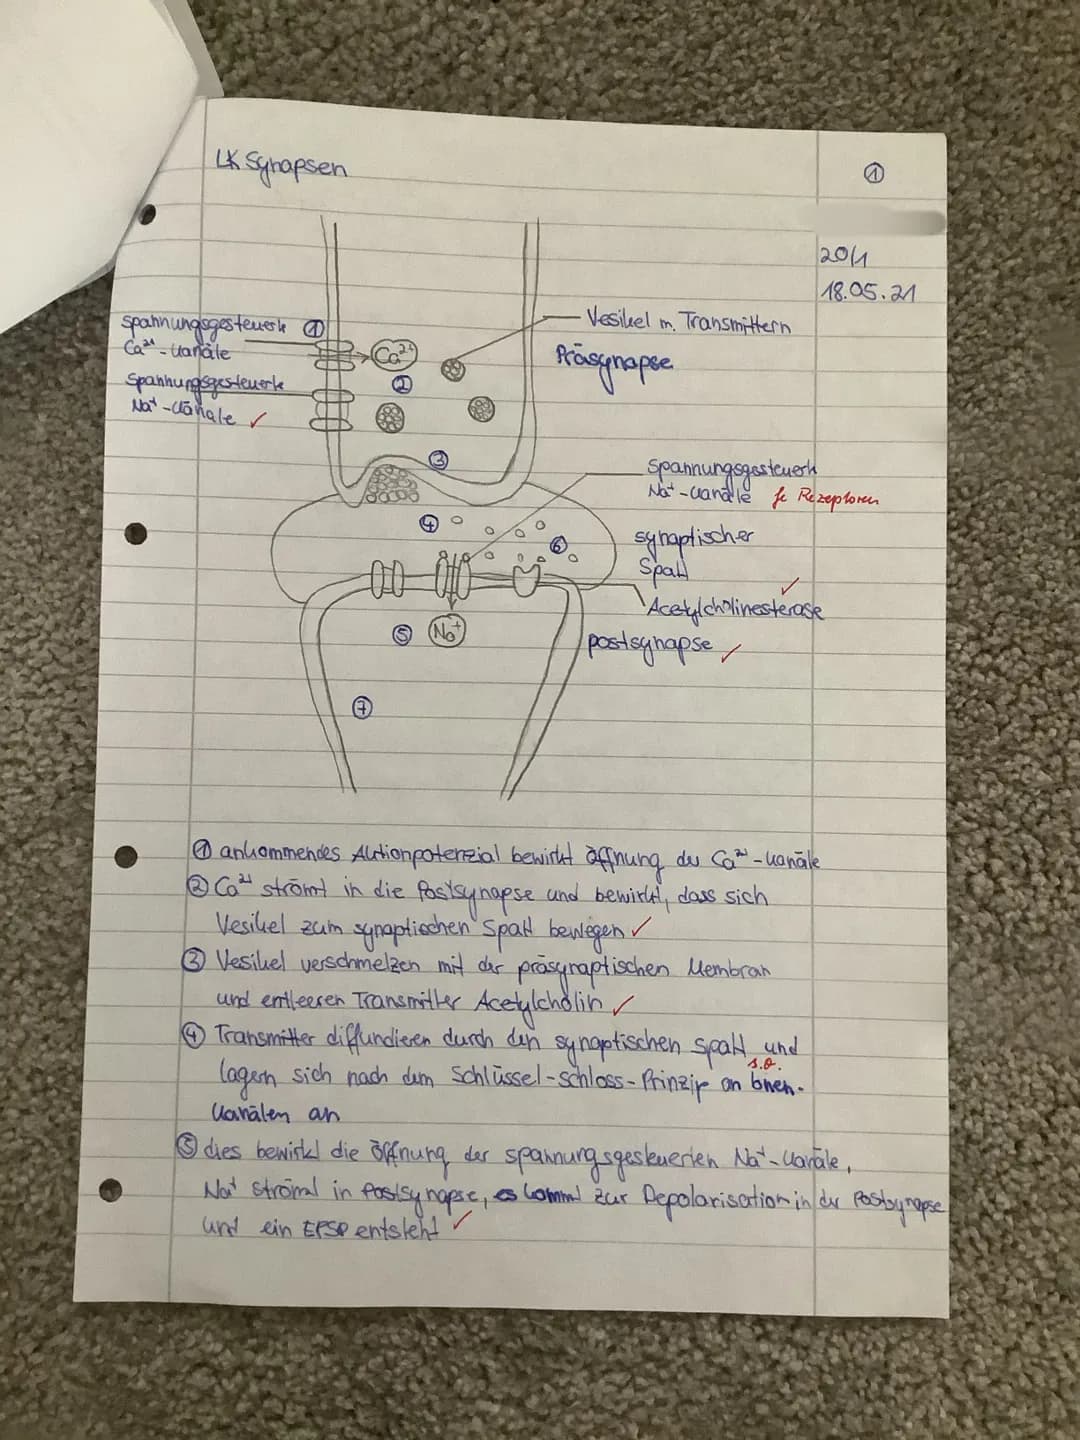 LK Synapsen
①
20/1
18.05.21
Spannungsgesteuerte ①
Ca²⁺-Kanäle
Spannungsgesteuerte
Na⁺-Kanäle ✓
Ca²⁺
②
Vesikel m. Transmittern
Präsynapse
③
Spannungsgesteuerte
Na⁺-Kanäle fe Rezeptoren
④
⑥
synaptischer
Spalt
✓
Acetylcholinesterase
⑤ Na⁺
postsynapse ✓
⑦
① ankommendes Aktionpotenzial bewirkt Öffnung der Ca²⁺-Kanäle
② Ca²⁺ strömt in die Postsynapse und bewirkt, dass sich
Vesikel zum synaptischen Spalt bewegen ✓
③ Vesikel verschmelzen mit der präsynaptischen Membran
und entleeren Transmitter Acetylcholin ✓
④ Transmitter diffundieren durch den synaptischen Spalt und
s.o.
lagern sich nach dem Schlüssel-Schloss-Prinzip an Ionen-
Kanälen an
⑤ dies bewirkt die Öffnung der spannungsgesteuerten Na⁺-Kanäle,
Na⁺ strömt in Postsynapse, es kommt zur Depolarisation in der Postsynapse
und ein EPSP entsteht ✓